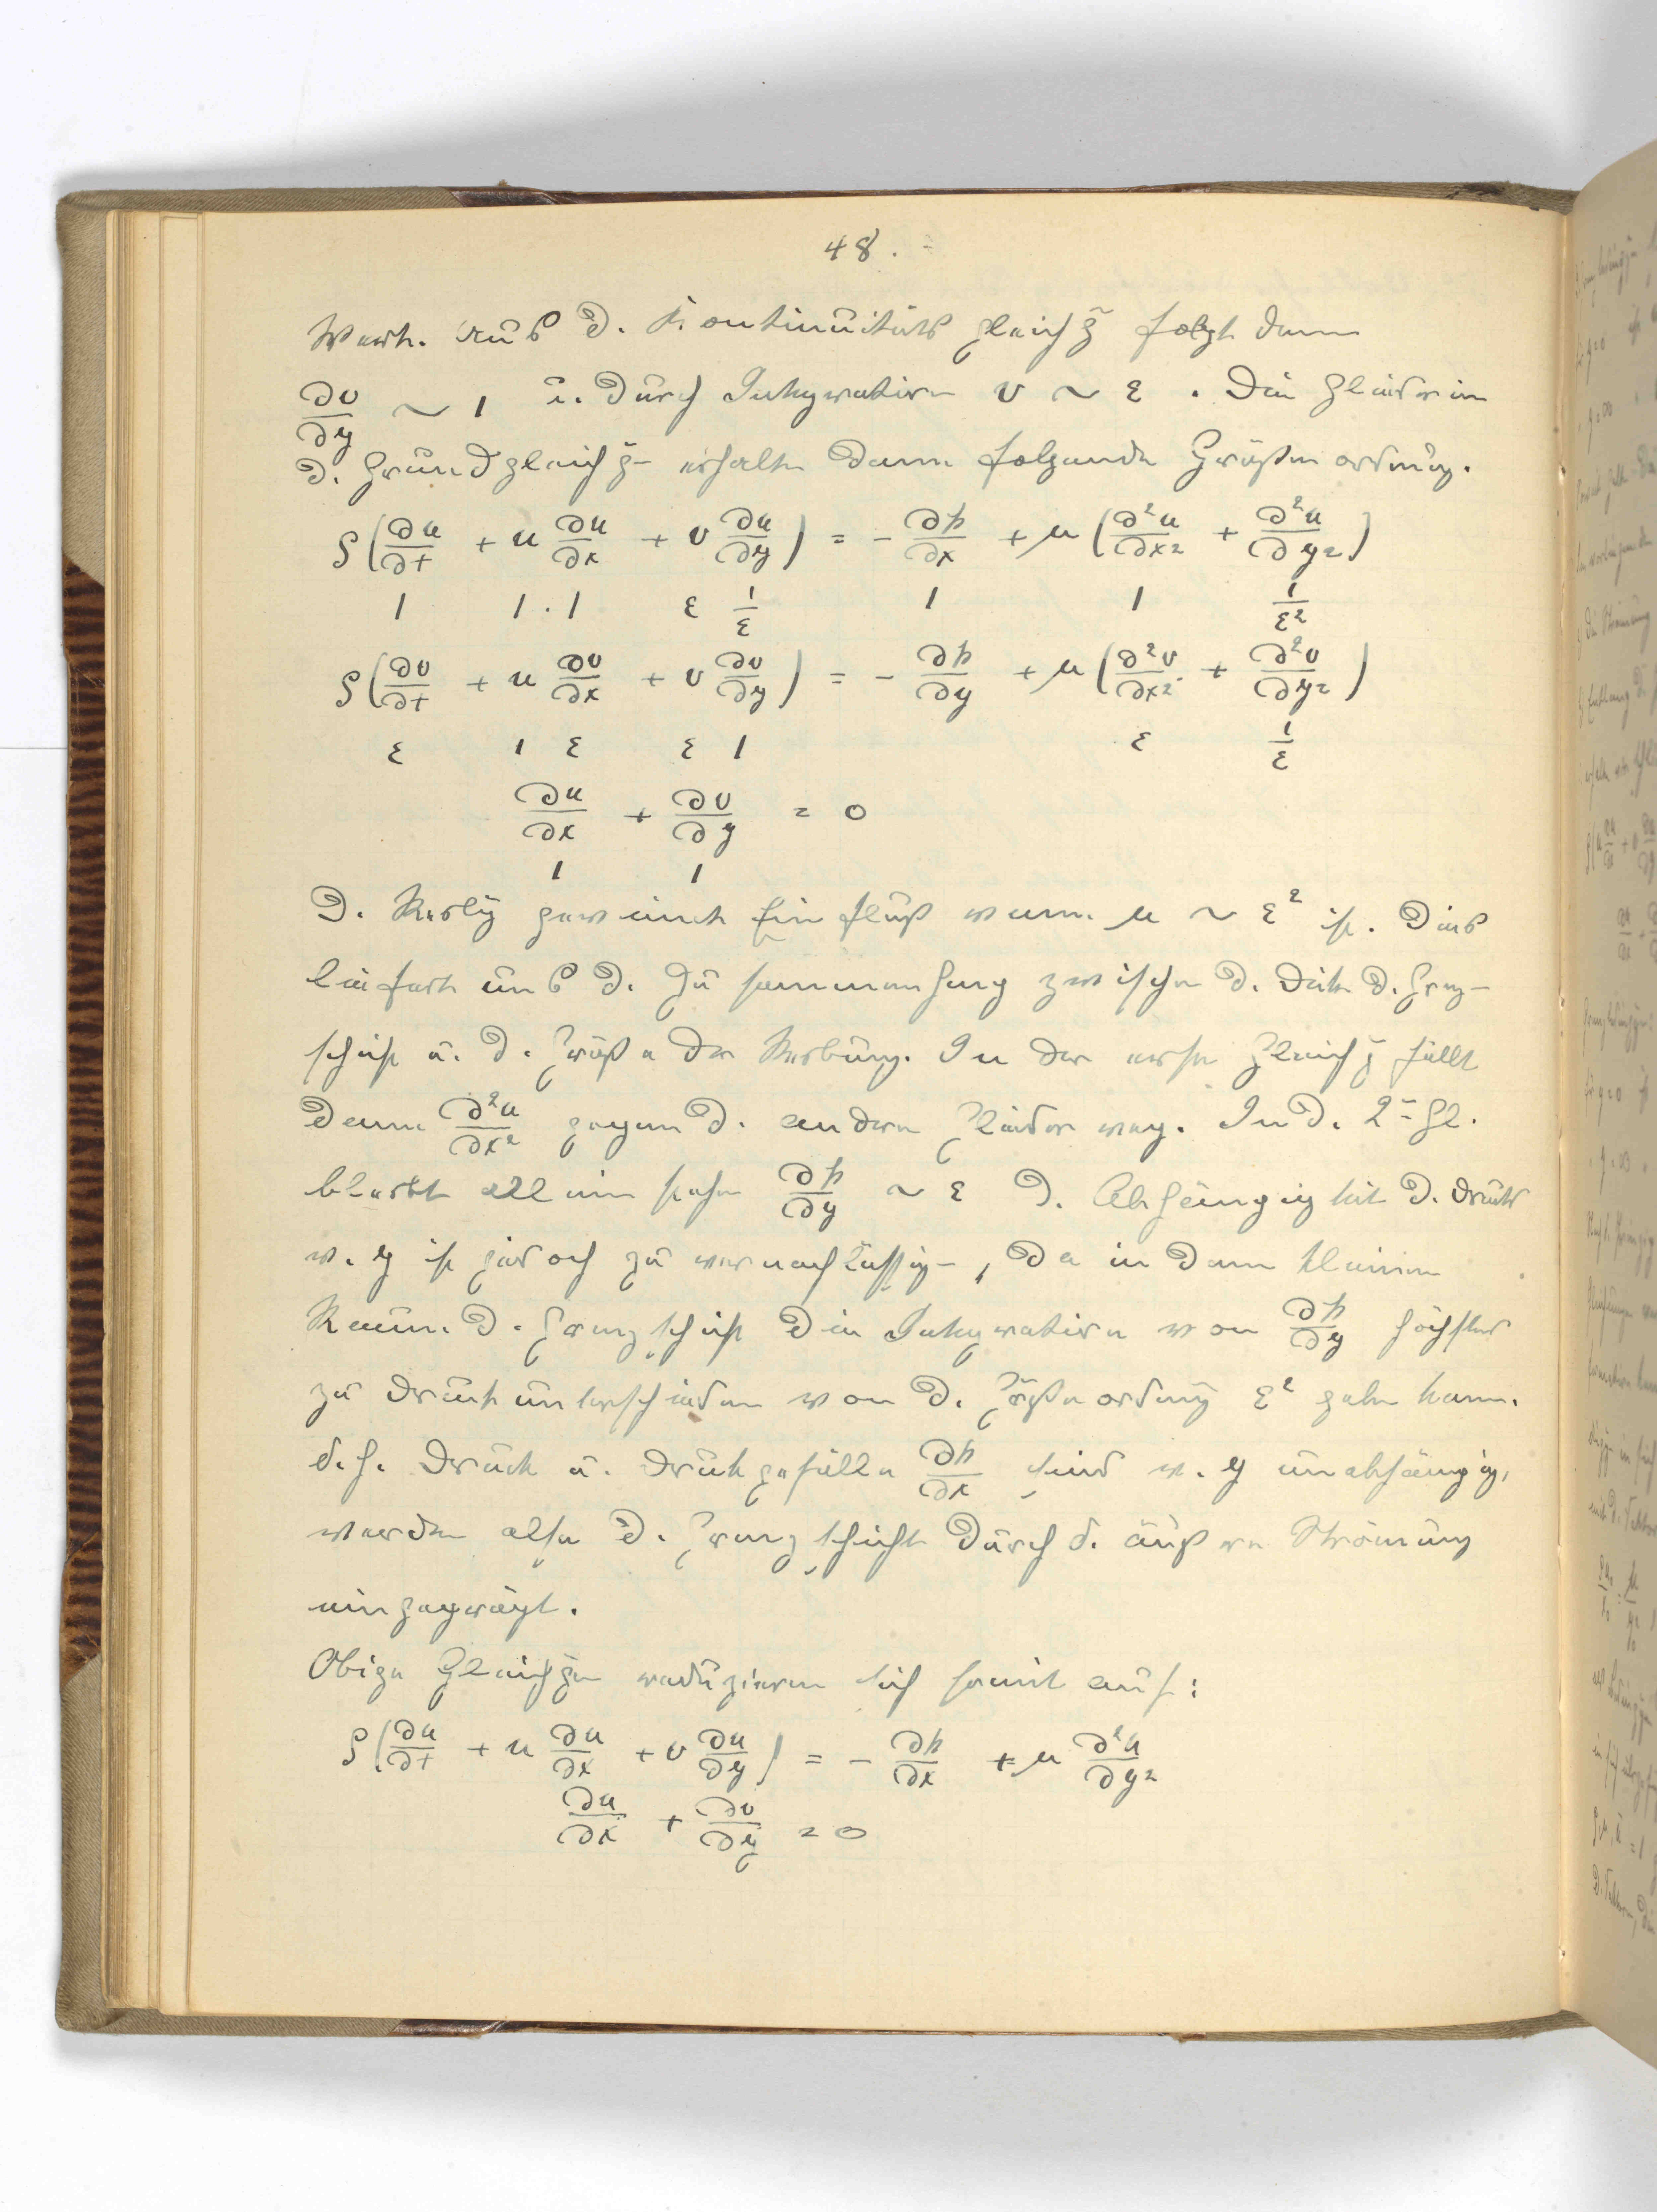 48.
Wert. Aus d. Kontinuitätsgleichg folgt dann
∂v/∂y ~ 1 u. durch Integration v ~ ε. Die Glieder in
d. Grundgleichg- erhalten dann folgende Größenordnung.
ρ(∂u/∂t + u ∂u/∂x + v ∂u/∂y) = - ∂p/∂x + μ(∂²u/∂x² + ∂²u/∂y²)
1 1·1 ε 1/ε 1 1 1/ε²
ρ(∂v/∂t + u ∂v/∂x + v ∂v/∂y) = - ∂p/∂y + μ(∂²v/∂x² + ∂²v/∂y²)
ε 1 ε ε 1 ε 1/ε
∂u/∂x + ∂v/∂y = 0
1 1
D. Reibg gewinnt Einfluß wenn μ ~ ε² ist. Dies
liefert uns d. Zusammenhang zwischen d. Dicke d. Grenz-
schicht u. d. Größe der Reibung. In der ersten Gleichg fällt
dann ∂²u/∂x² gegen d. andern Glieder weg. In d. 2- Gl.
bleibt allein stehen ∂p/∂y ~ ε D. Abhängigkeit d. Drucks
v. y ist jedoch zu vernachlässig-, da in dem kleinen
Raum d. Grenzschicht die Integration von ∂p/∂y höchstens
zu Druckunterschieden von d. Größenordnung ε² geben kann.
d.h. Druck u. Druckgefälle ∂p/∂x sind v. y unabhängig,
werden also d. Grenzschicht durch d. äußere Strömung
eingeprägt.
Obige Gleichgen reduzieren sich somit auf:
ρ(∂u/∂t + u ∂u/∂x + v ∂u/∂y) = - ∂p/∂x + μ ∂²u/∂y²
∂u/∂x + ∂v/∂y = 0